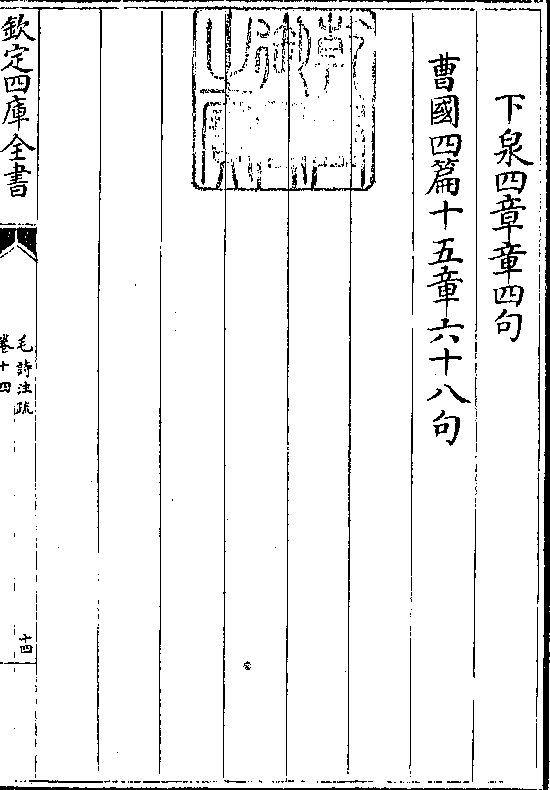 下泉四章章四句
曹國四篇十五章六十八句
欽定四庫全書
毛詩注疏
卷十四
十四